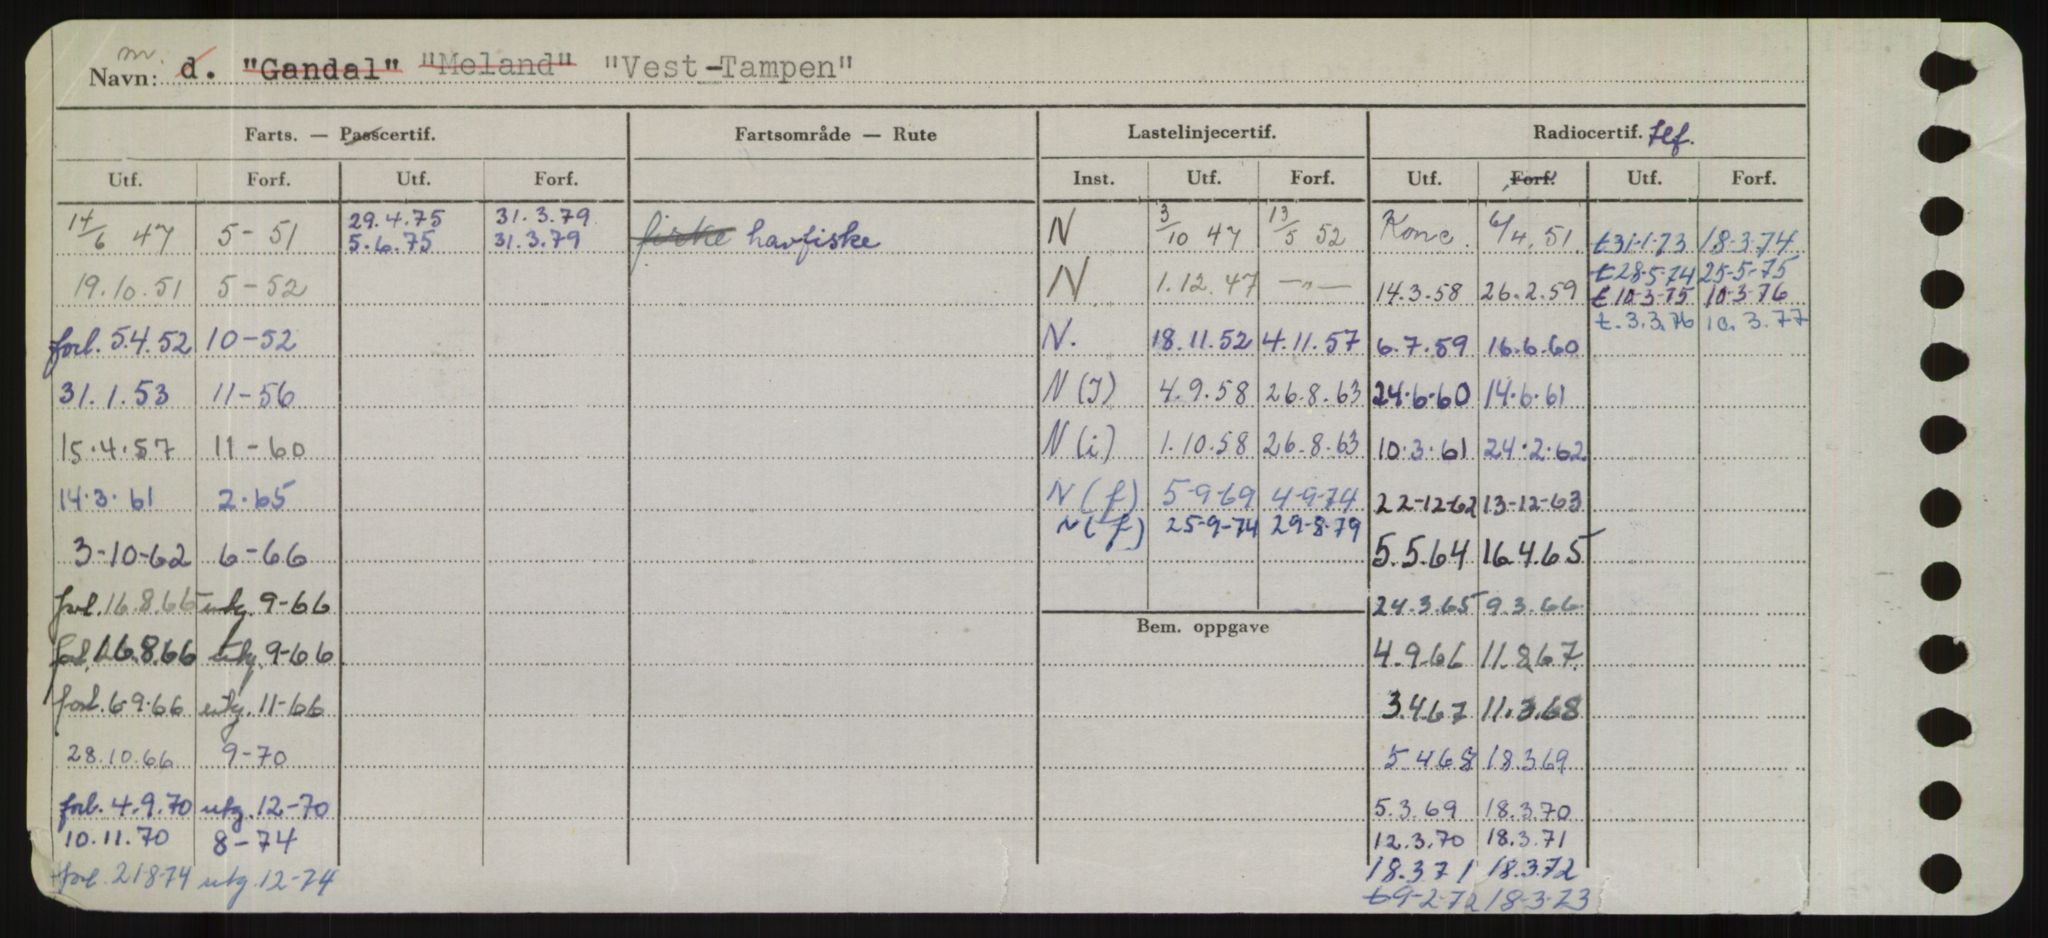 m.
Navn: d. "Gandal" "Meland" "Vest-Tampen"
Farts. — Passcertif. Fartsområde — Rute Lastelinjecertif. Radiocertif. tlf.
Utf. Forf. Utf. Forf. Inst. Utf. Forf. Utf. Forf. Utf. Forf.
14/6 47 5-51 29.4.75 31.3.79 fiske havfiske N 3/10 47 13/5 52 Konc. 6/4.51 t31-1-73 18-3-74
5.6.75 31.3.79
19.10.51 5-52 N 1.12.47 —"— 14.3.58 26.2.59 t28-5-74 25-5-75
t10-3-75 10-3-76
forl. 5.4.52 10-52 N. 18.11.52 4.11.57 6.7.59 16.6.60 t.3.3.76 10.3.77
31.1.53 11-56 N (I) 4.9.58 26.8.63 24.6.60 14.6.61
15.4.57 11-60 N (i) 1.10.58 26.8.63 10.3.61 24.2.62
14.3.61 2.65 N (f) 5-9-69 4-9-74 22-12-62 13-12-63
N (f) 25-9-74 29-8-79
3-10-62 6-66 5.5.64 16.4.65
forl. 16.8.66 utg. 9-66 24.3.65 9.3.66
Bem. oppgave
forl. 16.8.66 utg. 9-66 4.9.66 11.8.67
forl. 6-9-66 utg. 11-66 3.4.67 11.3.68
28.10.66 9-70 5.4.68 18.3.69
forl. 4.9.70 utg. 12-70 5.3.69 18.3.70
10.11.70 8-74 12.3.70 18.3.71
forl. 21-8-74 utg. 12-74 18.3.71 18.3.72
t9-2-72 18-3-73